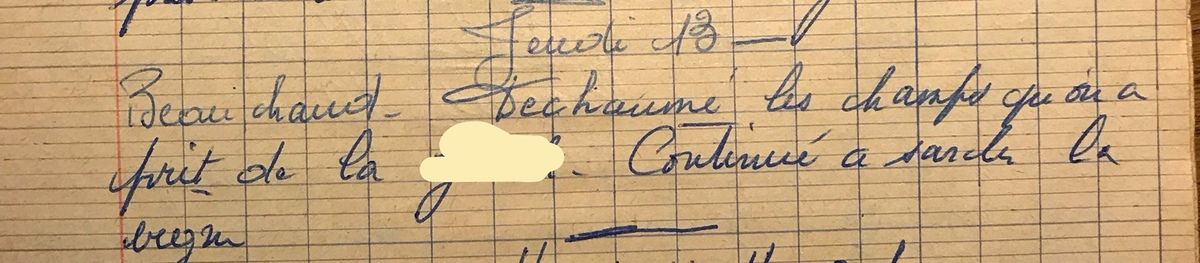 Jeudi 13 —
Beau chaud - Déchaumé les champs qu'on a
prit de la. Continué a sarcler la
vigne